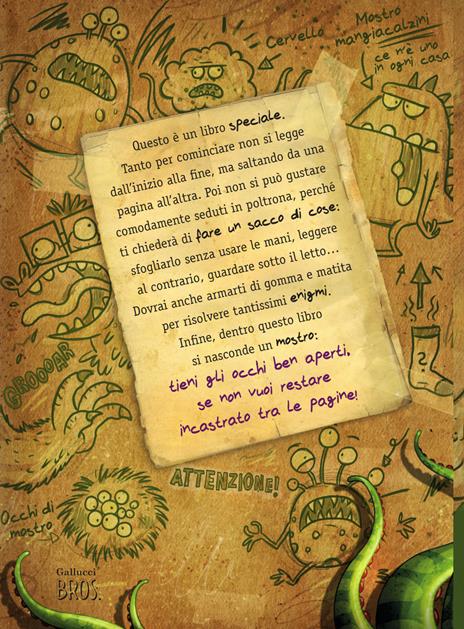 Cervello
Mostro
mangiacalzini
ce n'è uno
in ogni casa
Questo è un libro speciale.
Tanto per cominciare non si legge
dall'inizio alla fine, ma saltando da una
pagina all'altra. Poi non si può gustare
comodamente seduti in poltrona, perché
ti chiederà di fare un sacco di cose:
sfogliarlo senza usare le mani, leggere
al contrario, guardare sotto il letto...
Dovrai anche armarti di gomma e matita
per risolvere tantissimi enigmi.
Infine, dentro questo libro
si nasconde un mostro:
tieni gli occhi ben aperti,
se non vuoi restare
incastrato tra le pagine!
GROOOAR
2
ATTENZIONE!
Occhi di
mostro
Gallucci
BROS.